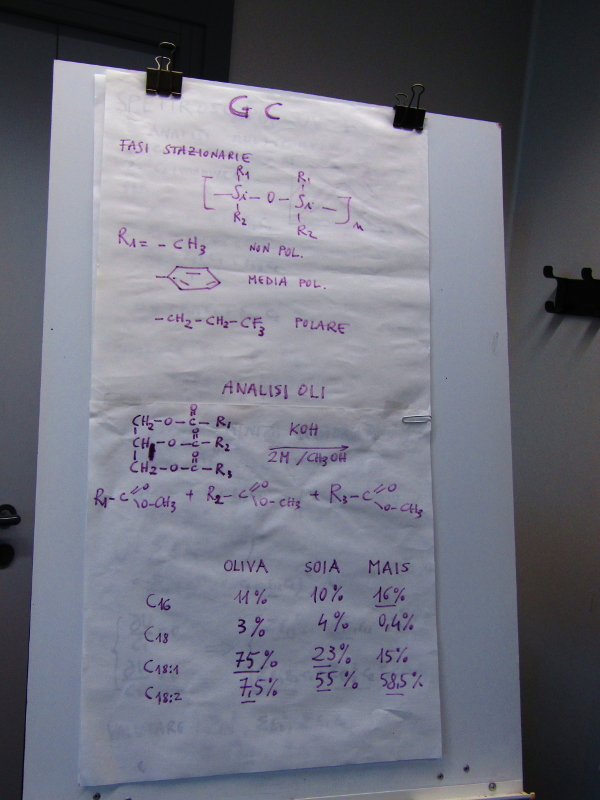 GC
FASI STAZIONARIE
R1 R1
[ -Si - O - Si - ]n
R2 R2
R1 = - CH3 NON POL.
MEDIA POL.
- CH2 - CH2 - CF3 POLARE
ANALISI OLI
CH2 - O - C - R1
O
CH - O - C - R2
O
CH2 - O - C - R3
O
KOH
2M / CH3OH
R1 - C O O - CH3 + R2 - C O O - CH3 + R3 - C O O - CH3
OLIVA SOIA MAIS
C16 11% 10% 16%
C18 3% 4% 0,4%
C18:1 75% 23% 15%
C18:2 7,5% 55% 58,5%